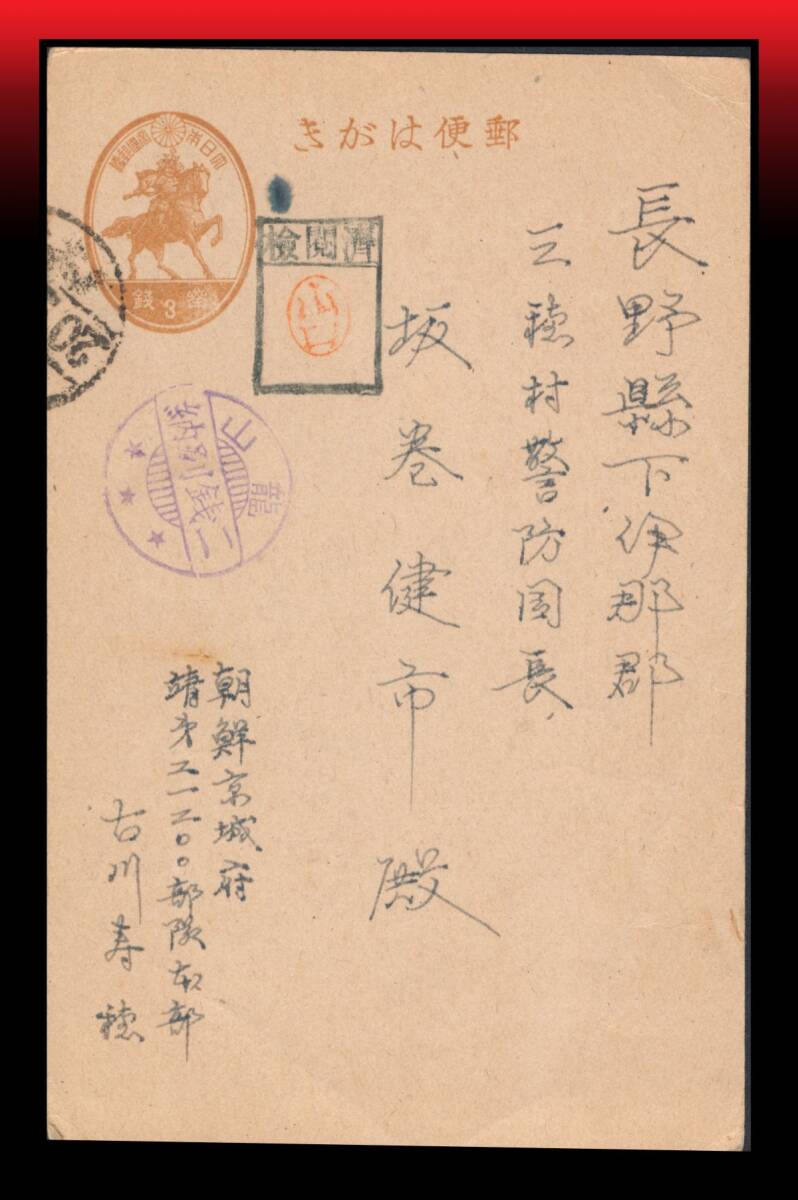 郵便はがき
大日本帝國郵便
參錢
3
検閲濟
山口
龍山
二銭別納
長野縣下伊那郡
三穂村警防団長
坂巻健市殿
朝鮮京城府
靖第二一二〇〇部隊本部
古川寿穂